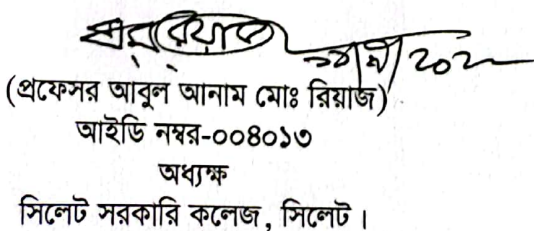 (প্রফেসর আবুল আনাম মোঃ রিয়াজ)
আইডি নম্বর-০০৪০১৩
অধ্যক্ষ
সিলেট সরকারি কলেজ, সিলেট।